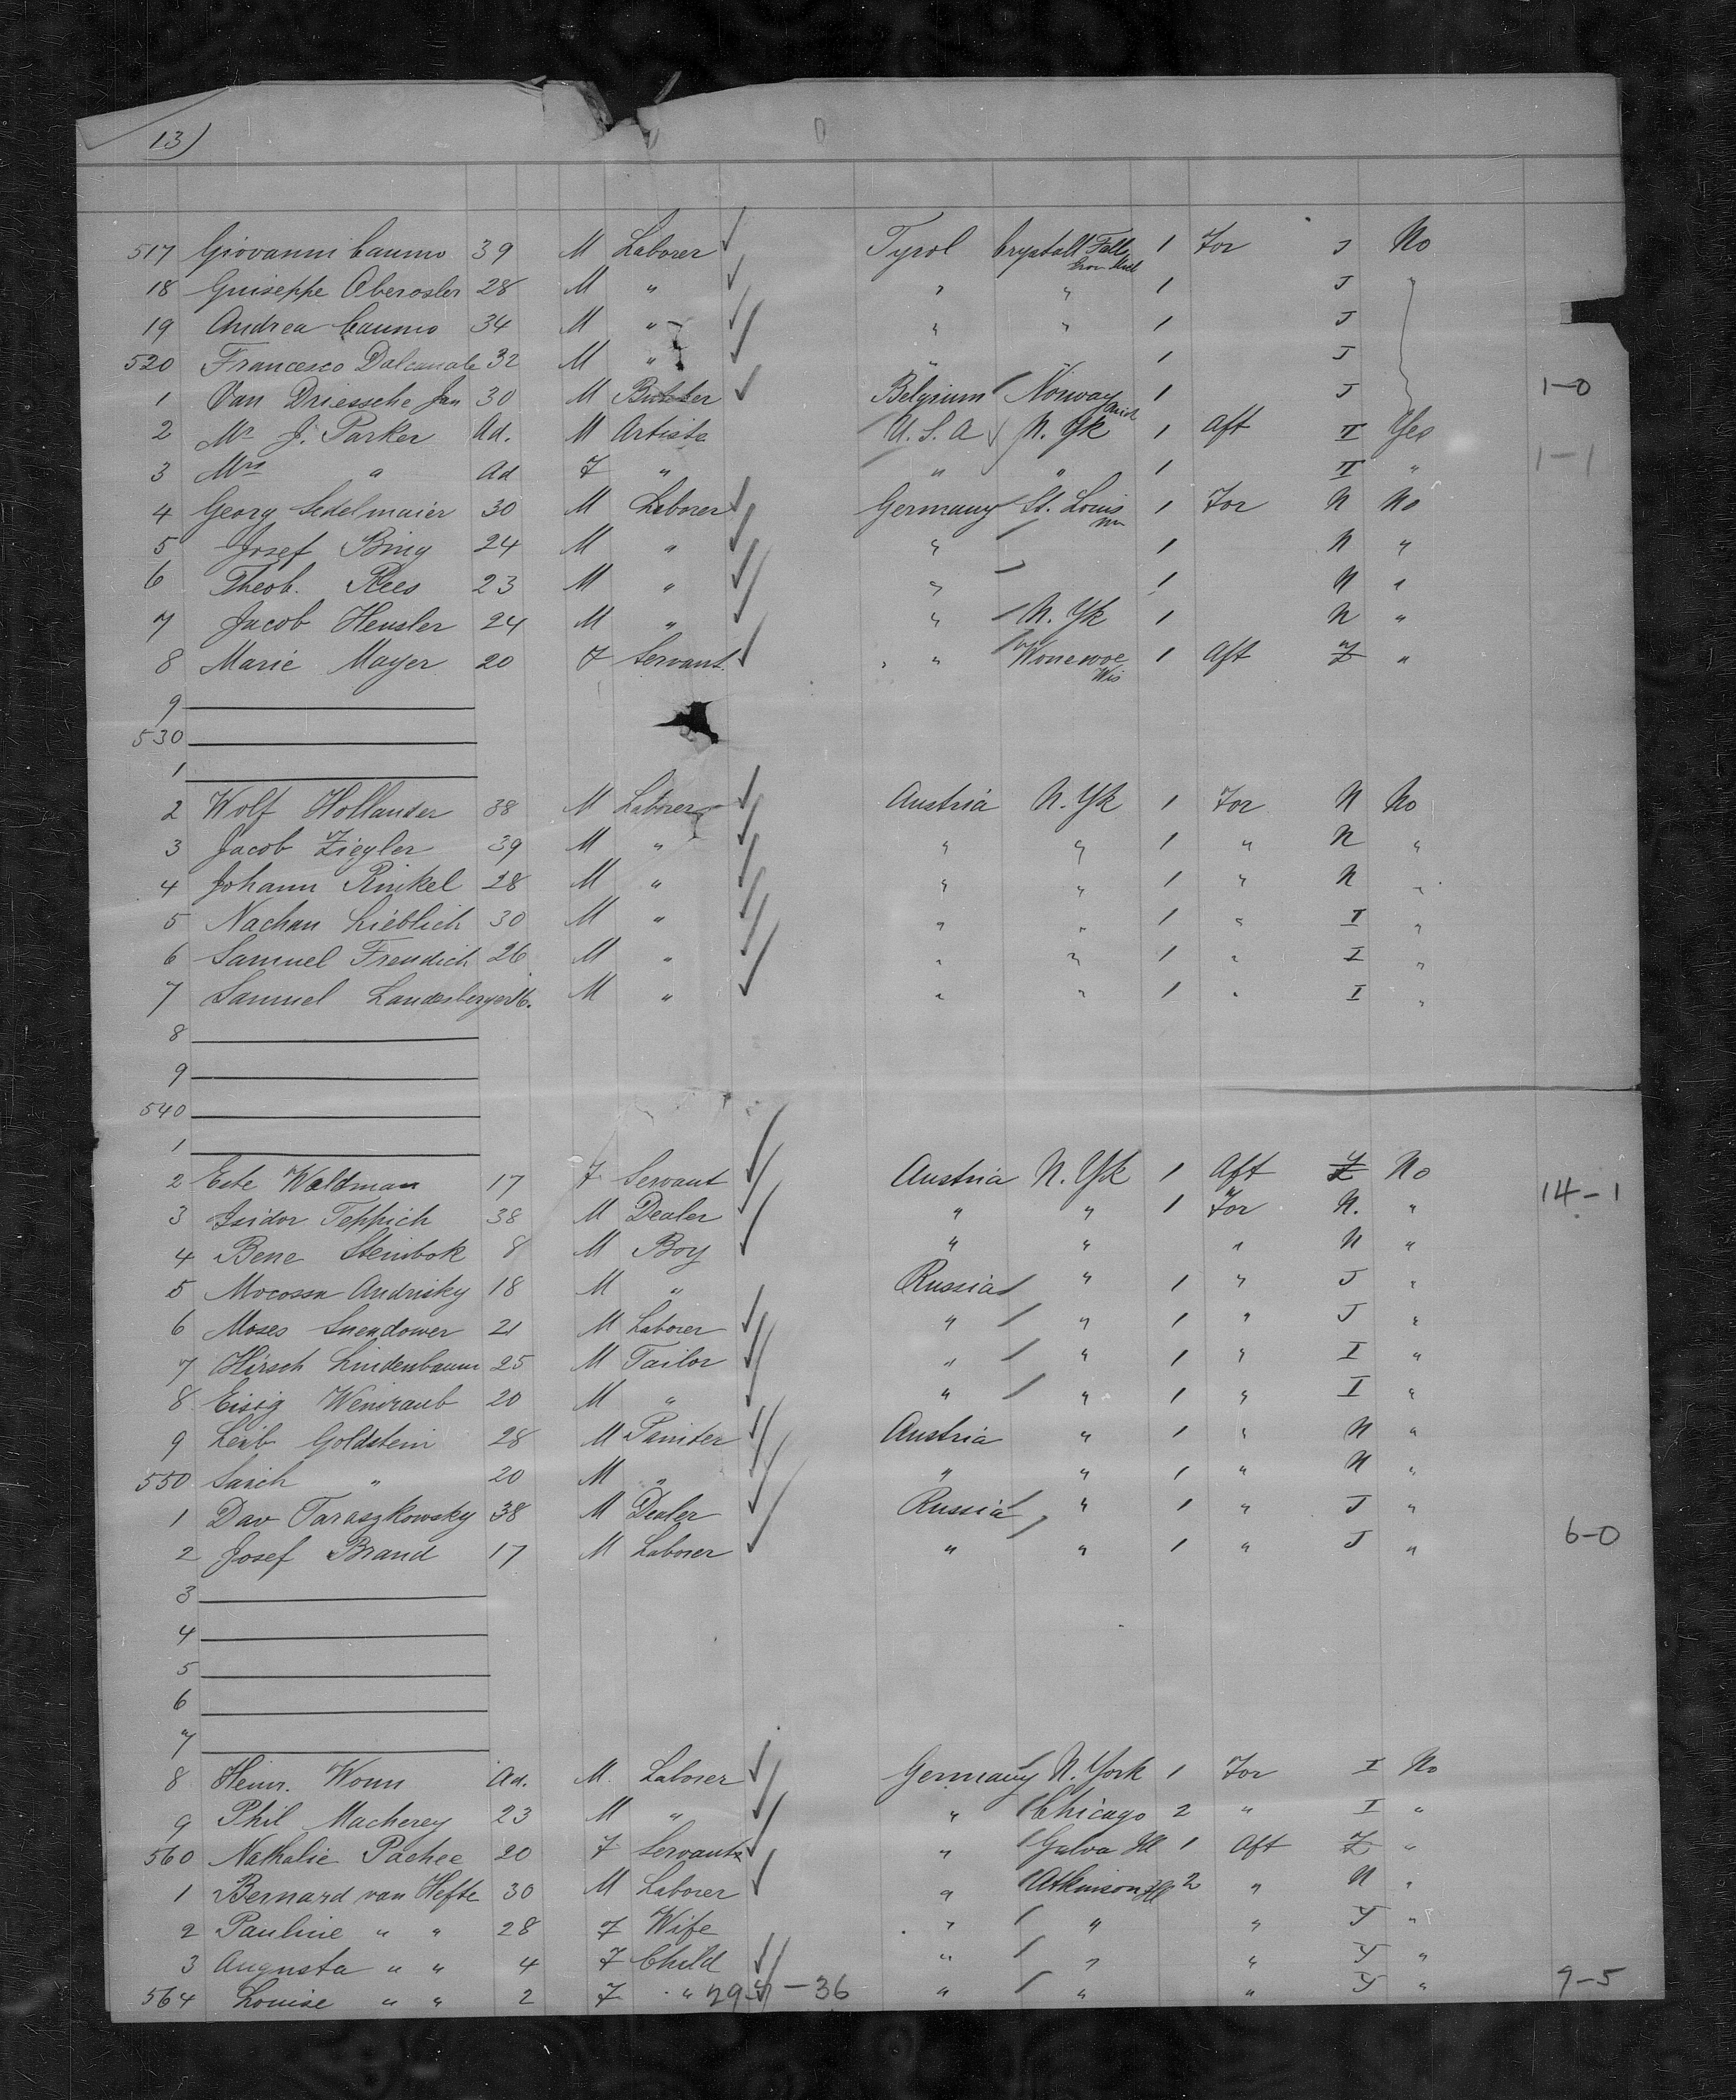 13)
517 Giovanni Caumo 39 M Laborer Tyrol Crystall Falls 1 For J No
18 Guiseppe Oberosler 28 M " " " 1 J "
19 Andrea Caumo 34 M " " " 1 J
520 Francesco Dalcanale 32 M " " 1 J
1 Van Driessche Jan 30 M Belgium Norway 1 J 1-0
2 Mr J. Parker Ad. M Artiste U.S.A N. Yk 1 Aft II Yes
3 Mrs " Ad F " " " 1 II " 1-1
4 Georg Sedelmaier 30 M Laborer Germany St. Louis 1 For N No
5 Josef Bing 24 M " " 1 N "
6 Theob. Rees 23 M " " 1 N "
7 Jacob Hensler 24 M " " N. Yk 1 N "
8 Marie Mayer 20 F Servant " Wonewoc Wis 1 Aft "
9
530
1
2 Wolf Hollander 38 M Laborer Austria N. Yk 1 For N No
3 Jacob Ziegler 39 M " " " 1 " N "
4 Johann Rinkel 28 M " " " 1 " N "
5 Nachan Lieblich 30 M " " " 1 " I "
6 Samuel Freudich 26 M " " " 1 " I "
7 Samuel Landesberger 16. M " " " 1 " I "
8
9
540
1
2 Este Waldman 17 F Servant Austria N. Yk 1 Aft No 14-1
3 Isidor Teppich 38 M Dealer " " 1 For N. "
4 Bene Steinbok 8 M Boy " " " N "
5 Mocossa Andrisky 18 M " Russia " 1 " J "
6 Moses 21 M Laborer " " 1 " J "
7 Hirsch Lindenbaum 25 M Tailor " " 1 " I "
8 Eisig Weinraub 20 M " " " 1 " I "
9 Leib Goldstein 28 M Painter Austria " 1 " N "
550 " 20 M " " " 1 " N "
1 Dav Taraszkowsky 38 M Dealer Russia " 1 " J "
2 Josef Brand 17 M Laborer " " 1 " J " 6-0
3
4
5
6
7
8 Heinr. Wonn Ad. M. Laborer Germany N. York 1 For I No
9 Phil Macherey 23 M " " Chicago 2 " I "
560 Nathalie Pachee 20 F Servants " Galva Ill 1 Aft "
1 Bernard van Hefte 30 M Laborer " Atkinson Ill 2 " N "
2 Pauline " " 28 F Wife " " " Y "
3 Augusta " " 4 F Child " " " Y "
564 Louise " " 2 F " 29 - 36 " " " Y " 9-5